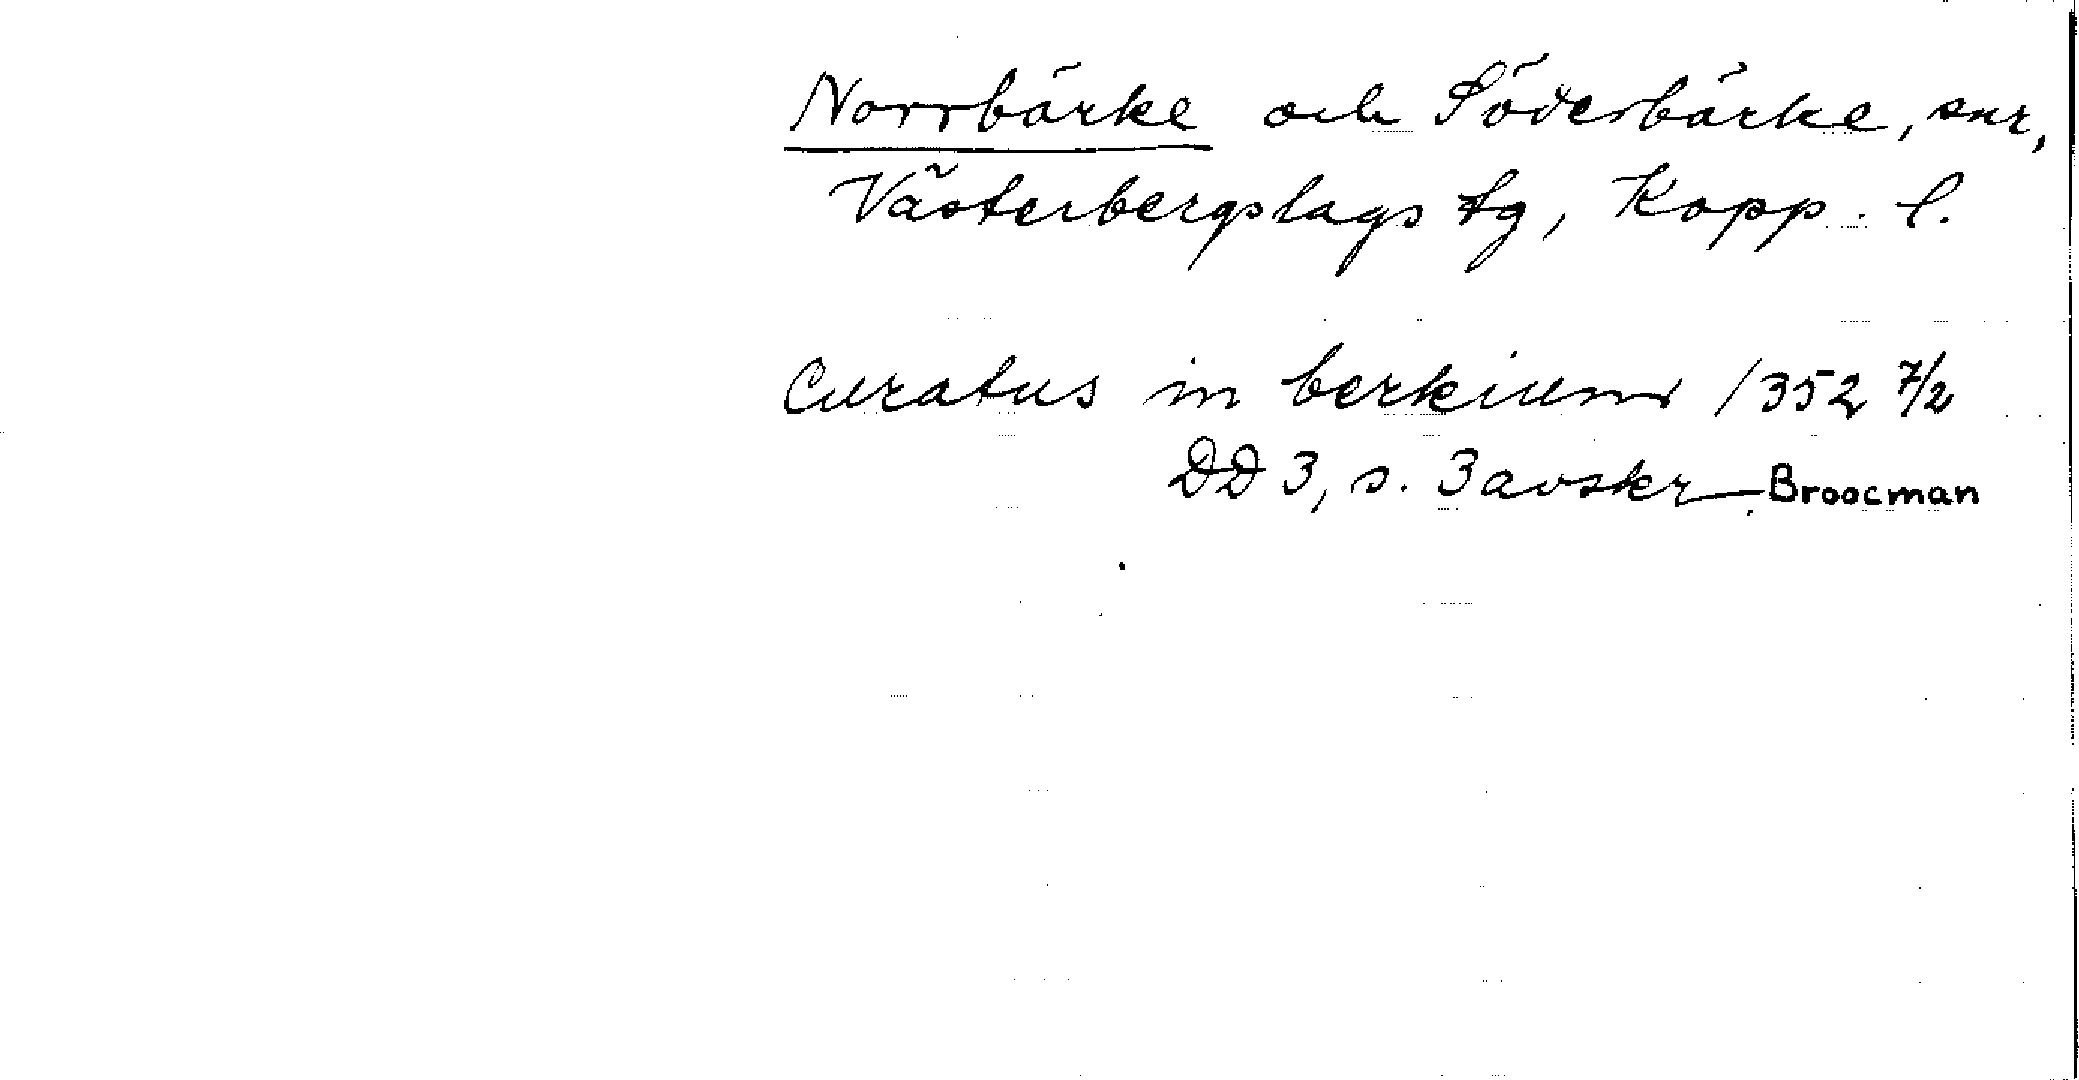 Norrbärke och Söderbärke, snr,
Västerbergslags tg, Kopp. l.
Curatus in berkium 1352 7/2
DD 3, s. 3 avskr Broocman